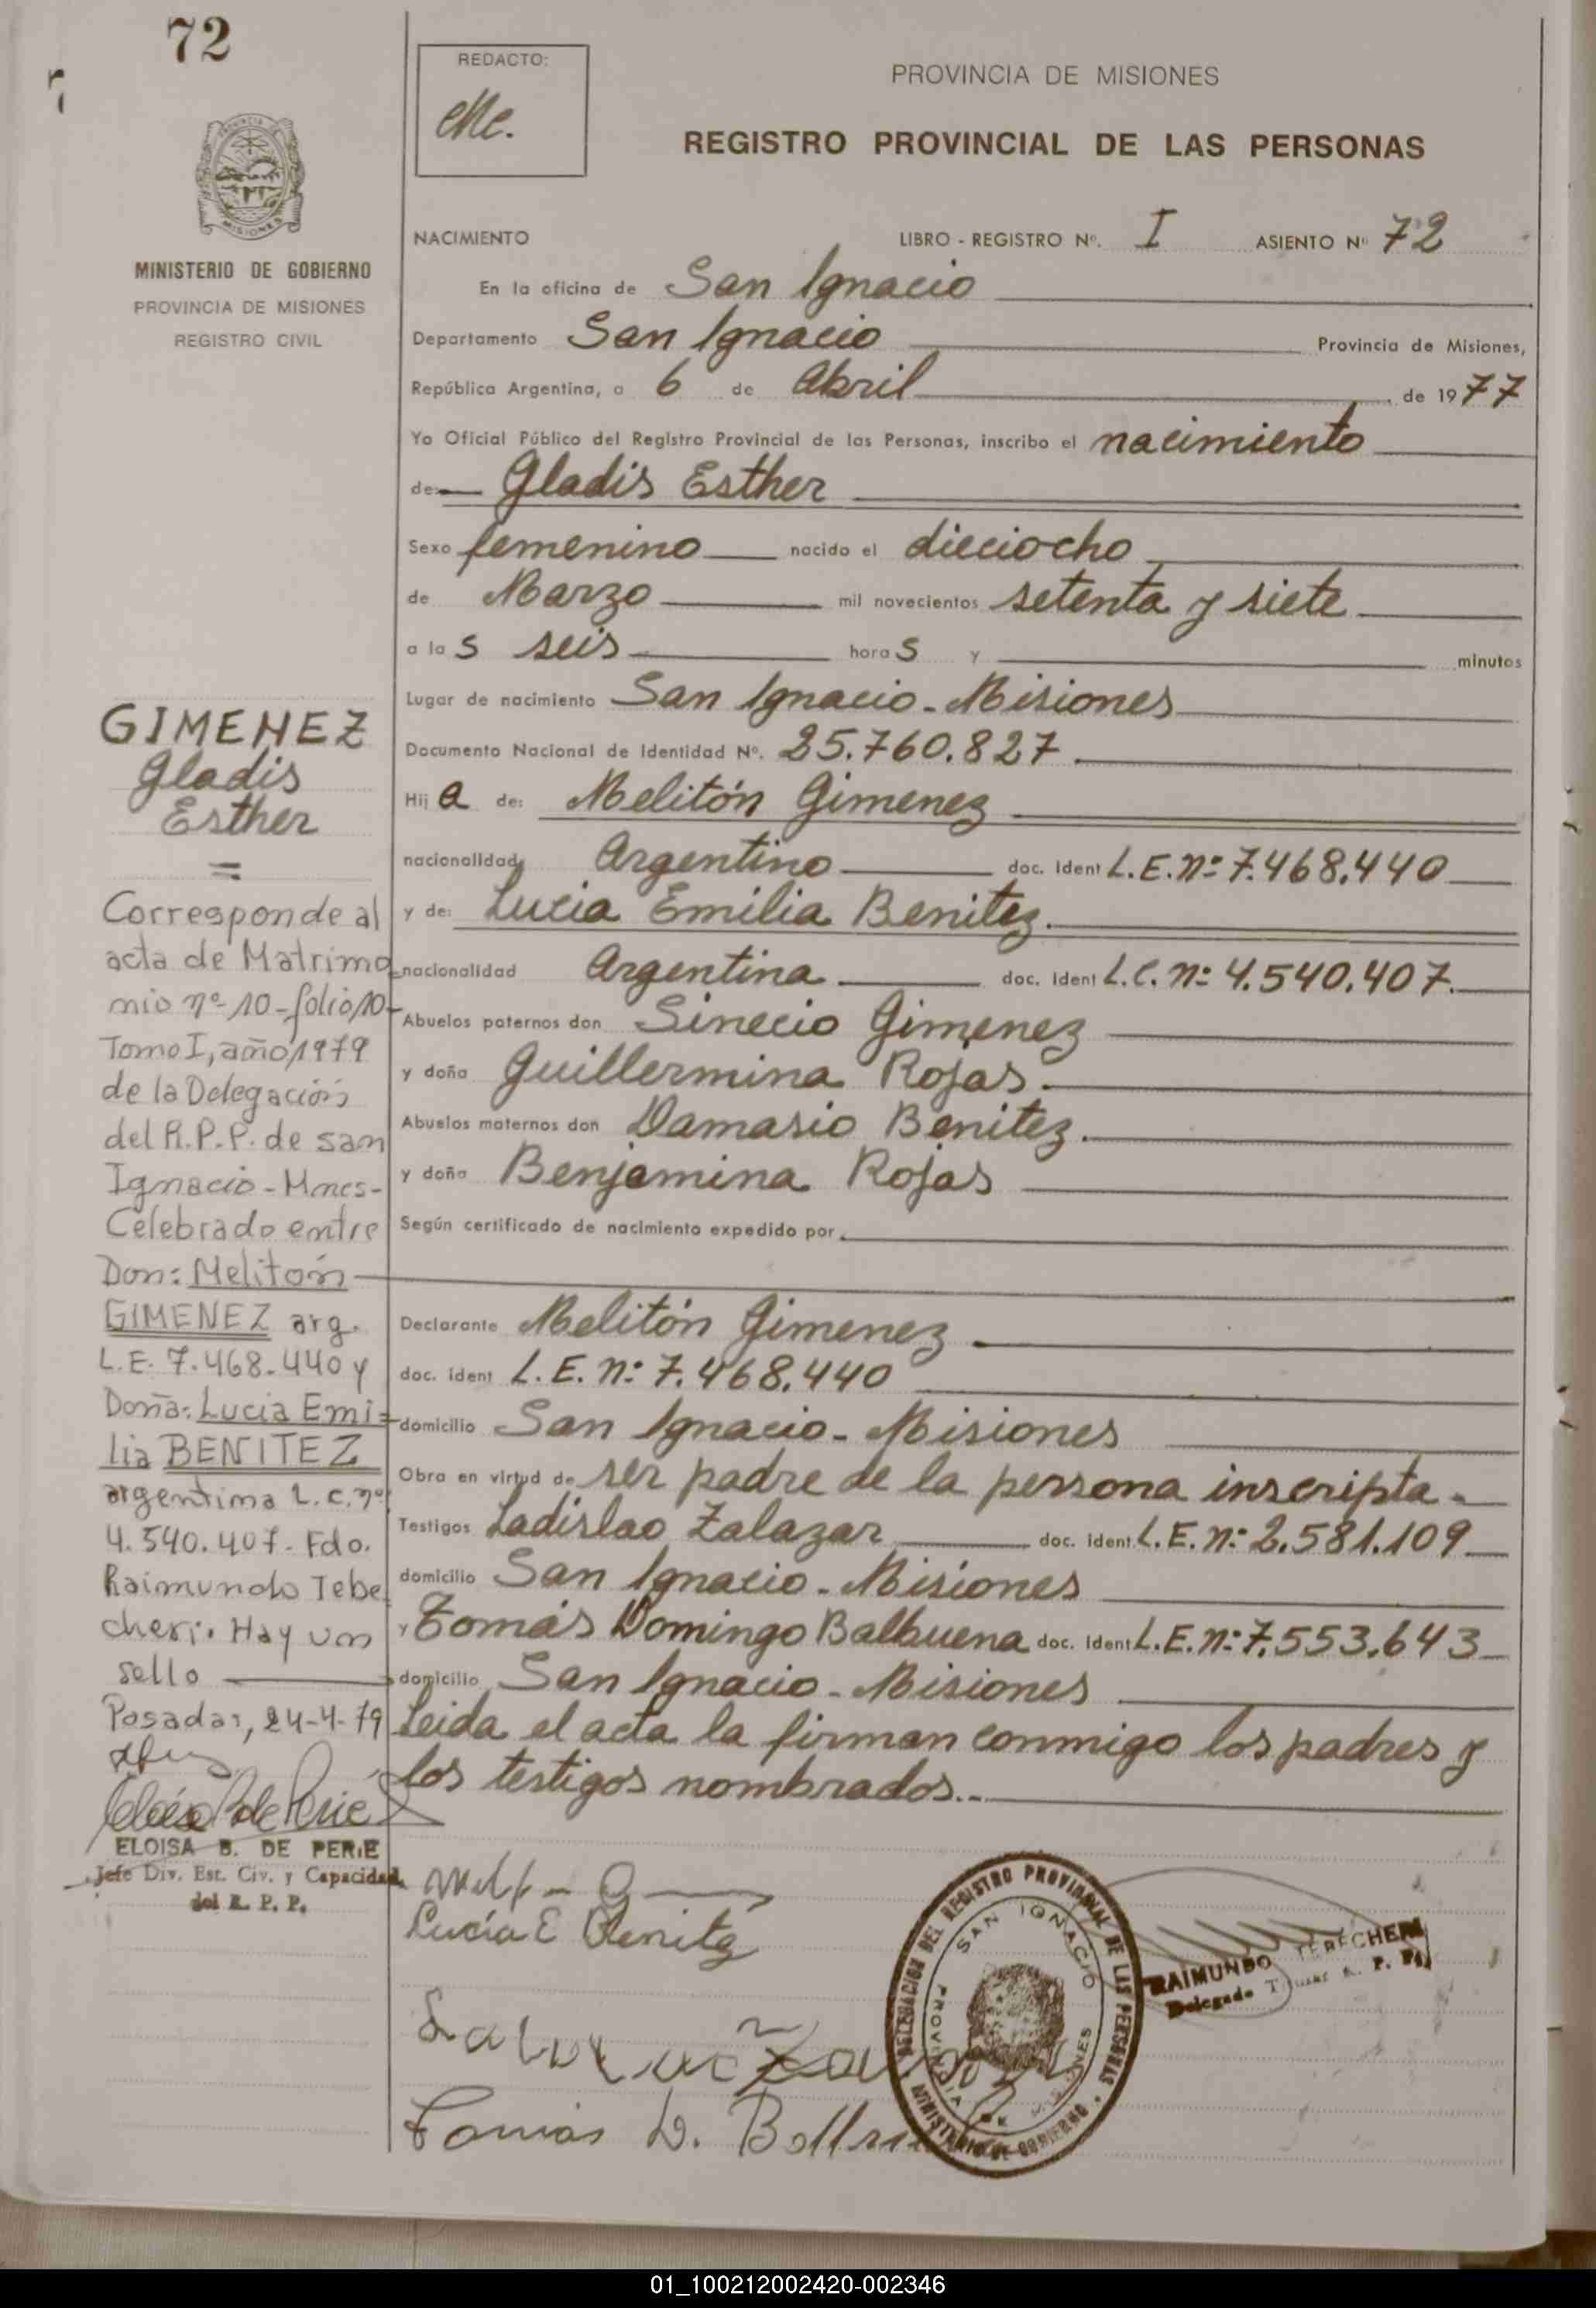 72
REDACTO:
PROVINCIA DE MISIONES
REGISTRO PROVINCIAL DE LAS PERSONAS
MISIONES
MINISTERIO DE GOBIERNO
PROVINCIA DE MISIONES
REGISTRO CIVIL
NACIMIENTO LIBRO - REGISTRO Nº. I ASIENTO Nº 72
En la oficina de San Ignacio
Departamento San Ignacio Provincia de Misiones,
República Argentina, a 6 de Abril de 1977
Yo Oficial Público del Registro Provincial de las Personas, inscribo el nacimiento
de: Gladis Esther
Sexo femenino nacido el dieciocho
de Marzo mil novecientos setenta y siete
a las seis horas y minutos
Lugar de nacimiento San Ignacio - Misiones
Documento Nacional de Identidad Nº. 25.760.827
Hija de: Melitón Gimenez
nacionalidad Argentino doc. Ident L.E. nº 7.468.440
y de: Lucia Emilia Benitez.
nacionalidad Argentina doc. Ident L.C. nº 4.540.407.
Abuelos paternos don Sinecio Gimenez
y doña Guillermina Rojas.
Abuelos maternos don Damasio Benitez.
y doña Benjamina Rojas
Según certificado de nacimiento expedido por
Declarante Melitón Gimenez
doc. ident L.E. nº 7.468.440
domicilio San Ignacio - Misiones
Obra en virtud de ser padre de la persona inscripta.
Testigos Ladislao Zalazar doc. ident. L.E. nº 2.581.109
domicilio San Ignacio - Misiones
y Tomás Domingo Balbuena doc. Ident L.E. nº 7.553.643
domicilio San Ignacio - Misiones
Leida el acta la firman conmigo los padres y
los testigos nombrados..
GIMENEZ
Gladis
Esther
=
Corresponde al
acta de Matrimo
nio nº 10 - folio 10 -
Tomo I, año 1979
de la Delegación
del R.P.P. de san
Ignacio - Mnes -
Celebrado entre
Don: Melitón
GIMENEZ arg.
L.E. 7.468.440 y
Doña: Lucia Emi=
lia BENITEZ
argentina L.C. nº
4.540.407. Fdo.
Raimundo Tebe
cheri. Hay un
sello
Posadas, 24-4-79
ELOISA B. DE PERIE
Jefe Div. Est. Civ. y Capacidad
del R. P. P.
Lucía E Benitez
Tomás D.
DELEGACION DEL REGISTRO PROVINCIAL DE LAS PERSONAS
MINISTERIO DE GOBIERNO
SAN IGNACIO
PROVINCIA DE MISIONES
RAIMUNDO TEBECHERI
Delegado R. P. P.
01_100212002420-002346